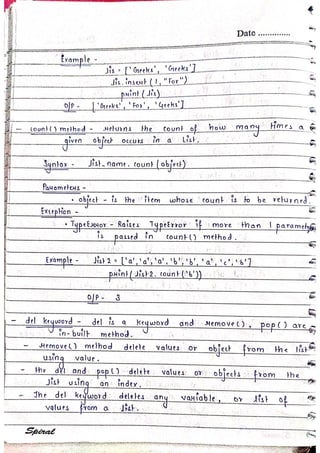 Date ..............
Example -
lis = ['Geeks', 'Geeks']
lis.insert (1, "For")
print (lis)
O/P - ['Geeks', 'For', 'Geeks']
- count() method - Returns the count of how many times a
given object occurs in a list.
Syntax - list_name.count (object)
Parameters -
• object - is the item whose count is to be returned.
Exception -
• TypeError - Raises TypeError if more than 1 paramete
is passed in count() method.
Example - list2 = ['a', 'a', 'a', 'b', 'b', 'a', 'c', 'b']
print (list2.count('b'))
O/P - 3
- del keyword - del is a keyword and remove(), pop() are
in-built method.
- remove() method delete values or object from the list
using value.
- the del and pop() delete values or objects from the
list using an index.
- The del keyword deletes any variable, or list of
values from a list.
Spiral